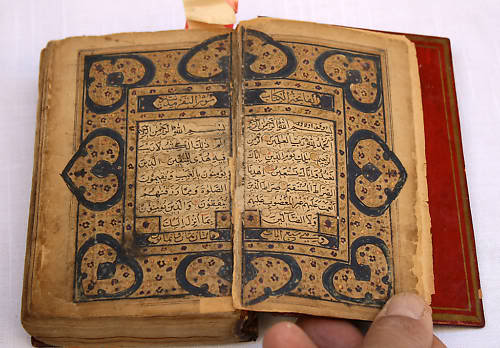 فاتحة الكتاب
بسم الله الرحمن الرحيم
الحمد لله رب العلمين الرحمن
الرحيم ملك يوم الدين اياك
نعبد واياك نستعين اهدنا
الصراط المستقيم صراط الذين
انعمت عليهم غير المغضوب
عليهم ولا الضالين
سورة البقرة
بسم الله الرحمن الرحيم
الم ذلك الكتب لا ريب
فيه هدى للمتقين الذين
يؤمنون بالغيب ويقيمون
الصلوة ومما رزقنهم
ينفقون والذين يؤمنون
بما انزل اليك